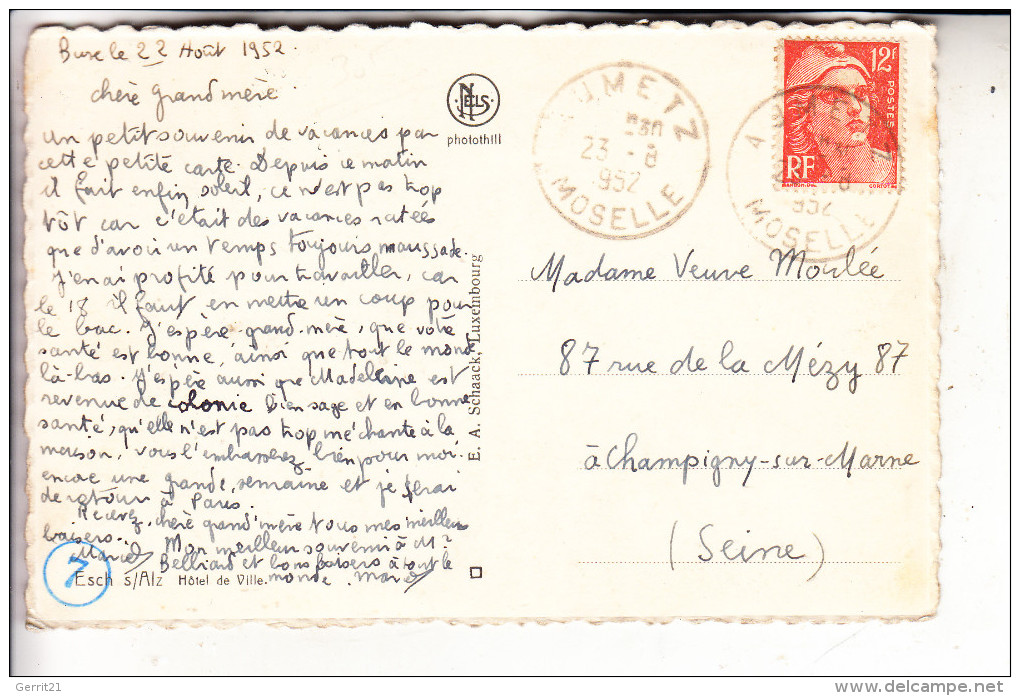 Bure le 22 Août 1952.
chère grand mère.
un petit souvenir de vacances par
cette petite carte. Depuis ce matin
il fait enfin soleil, ce n'est pas trop
tôt car c'était des vacances ratées
que d'avoir un temps toujours maussade.
J'en ai profité pour travailler, car
le 18 il faut en mettre un coup pour
le bac. J'espère grand-mère, que votre
santé est bonne, ainsi que tout le monde
là-bas. J'espère aussi que Madeleine est
revenue de colonie bien sage et en bonne
santé, qu'elle n'est pas trop méchante à la
maison, vous l'embrasserez bien pour moi.
encore une grande semaine et je serai
de retour à Paris.
Recevez, chère grand'mère tous mes meilleurs
baisers.
Mon meilleur souvenir à Mr
Belliard et bons baisers à tout le
monde.
Esch s/Alz Hôtel de Ville.
7
NELS
photothill
E. A. Schaack, Luxembourg
UMETZ
23 - 8
1952
MOSELLE
12F
POSTES
RF
MOSELLE
Madame Veuve Moulée
87 rue de la Mézy 87
à Champigny-sur-Marne
(Seine)
Gerrit21
delcampe.net